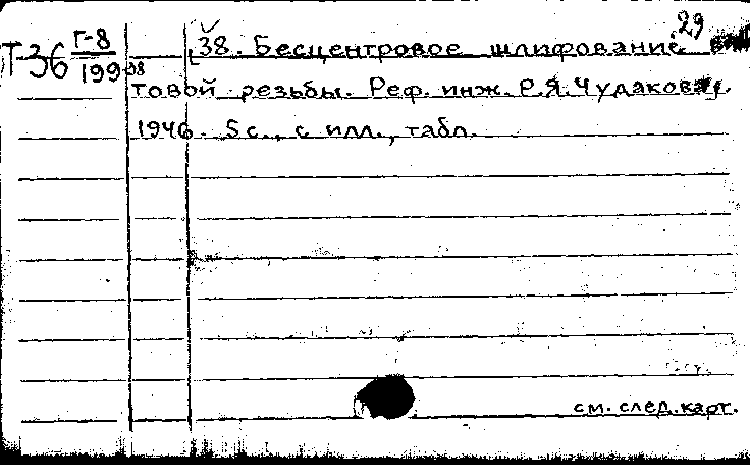 29
Т-36 Г-8/199-38 [38. Бесцентровое шлифование вин
товой резьбы. Реф. инж. Р.Я.Чудакова,
1946. 5 с., с илл., табл.
см. след. карт.